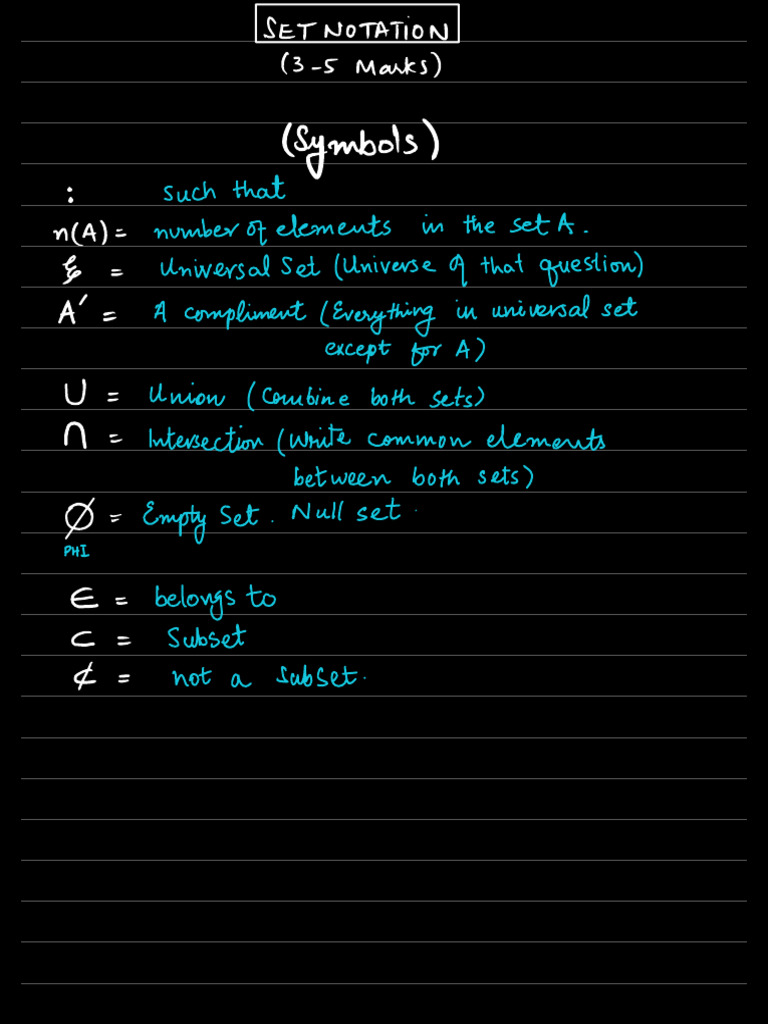 SET NOTATION
(3-5 Marks)
(Symbols)
: such that
n(A) = number of elements in the set A.
ξ = Universal Set (Universe of that question)
A' = A compliment (Everything in universal set
except for A)
∪ = Union (Combine both sets)
∩ = Intersection (Write common elements
between both sets)
∅ = Empty Set. Null set.
PHI
∈ = belongs to
⊂ = Subset
⊄ = not a subset.